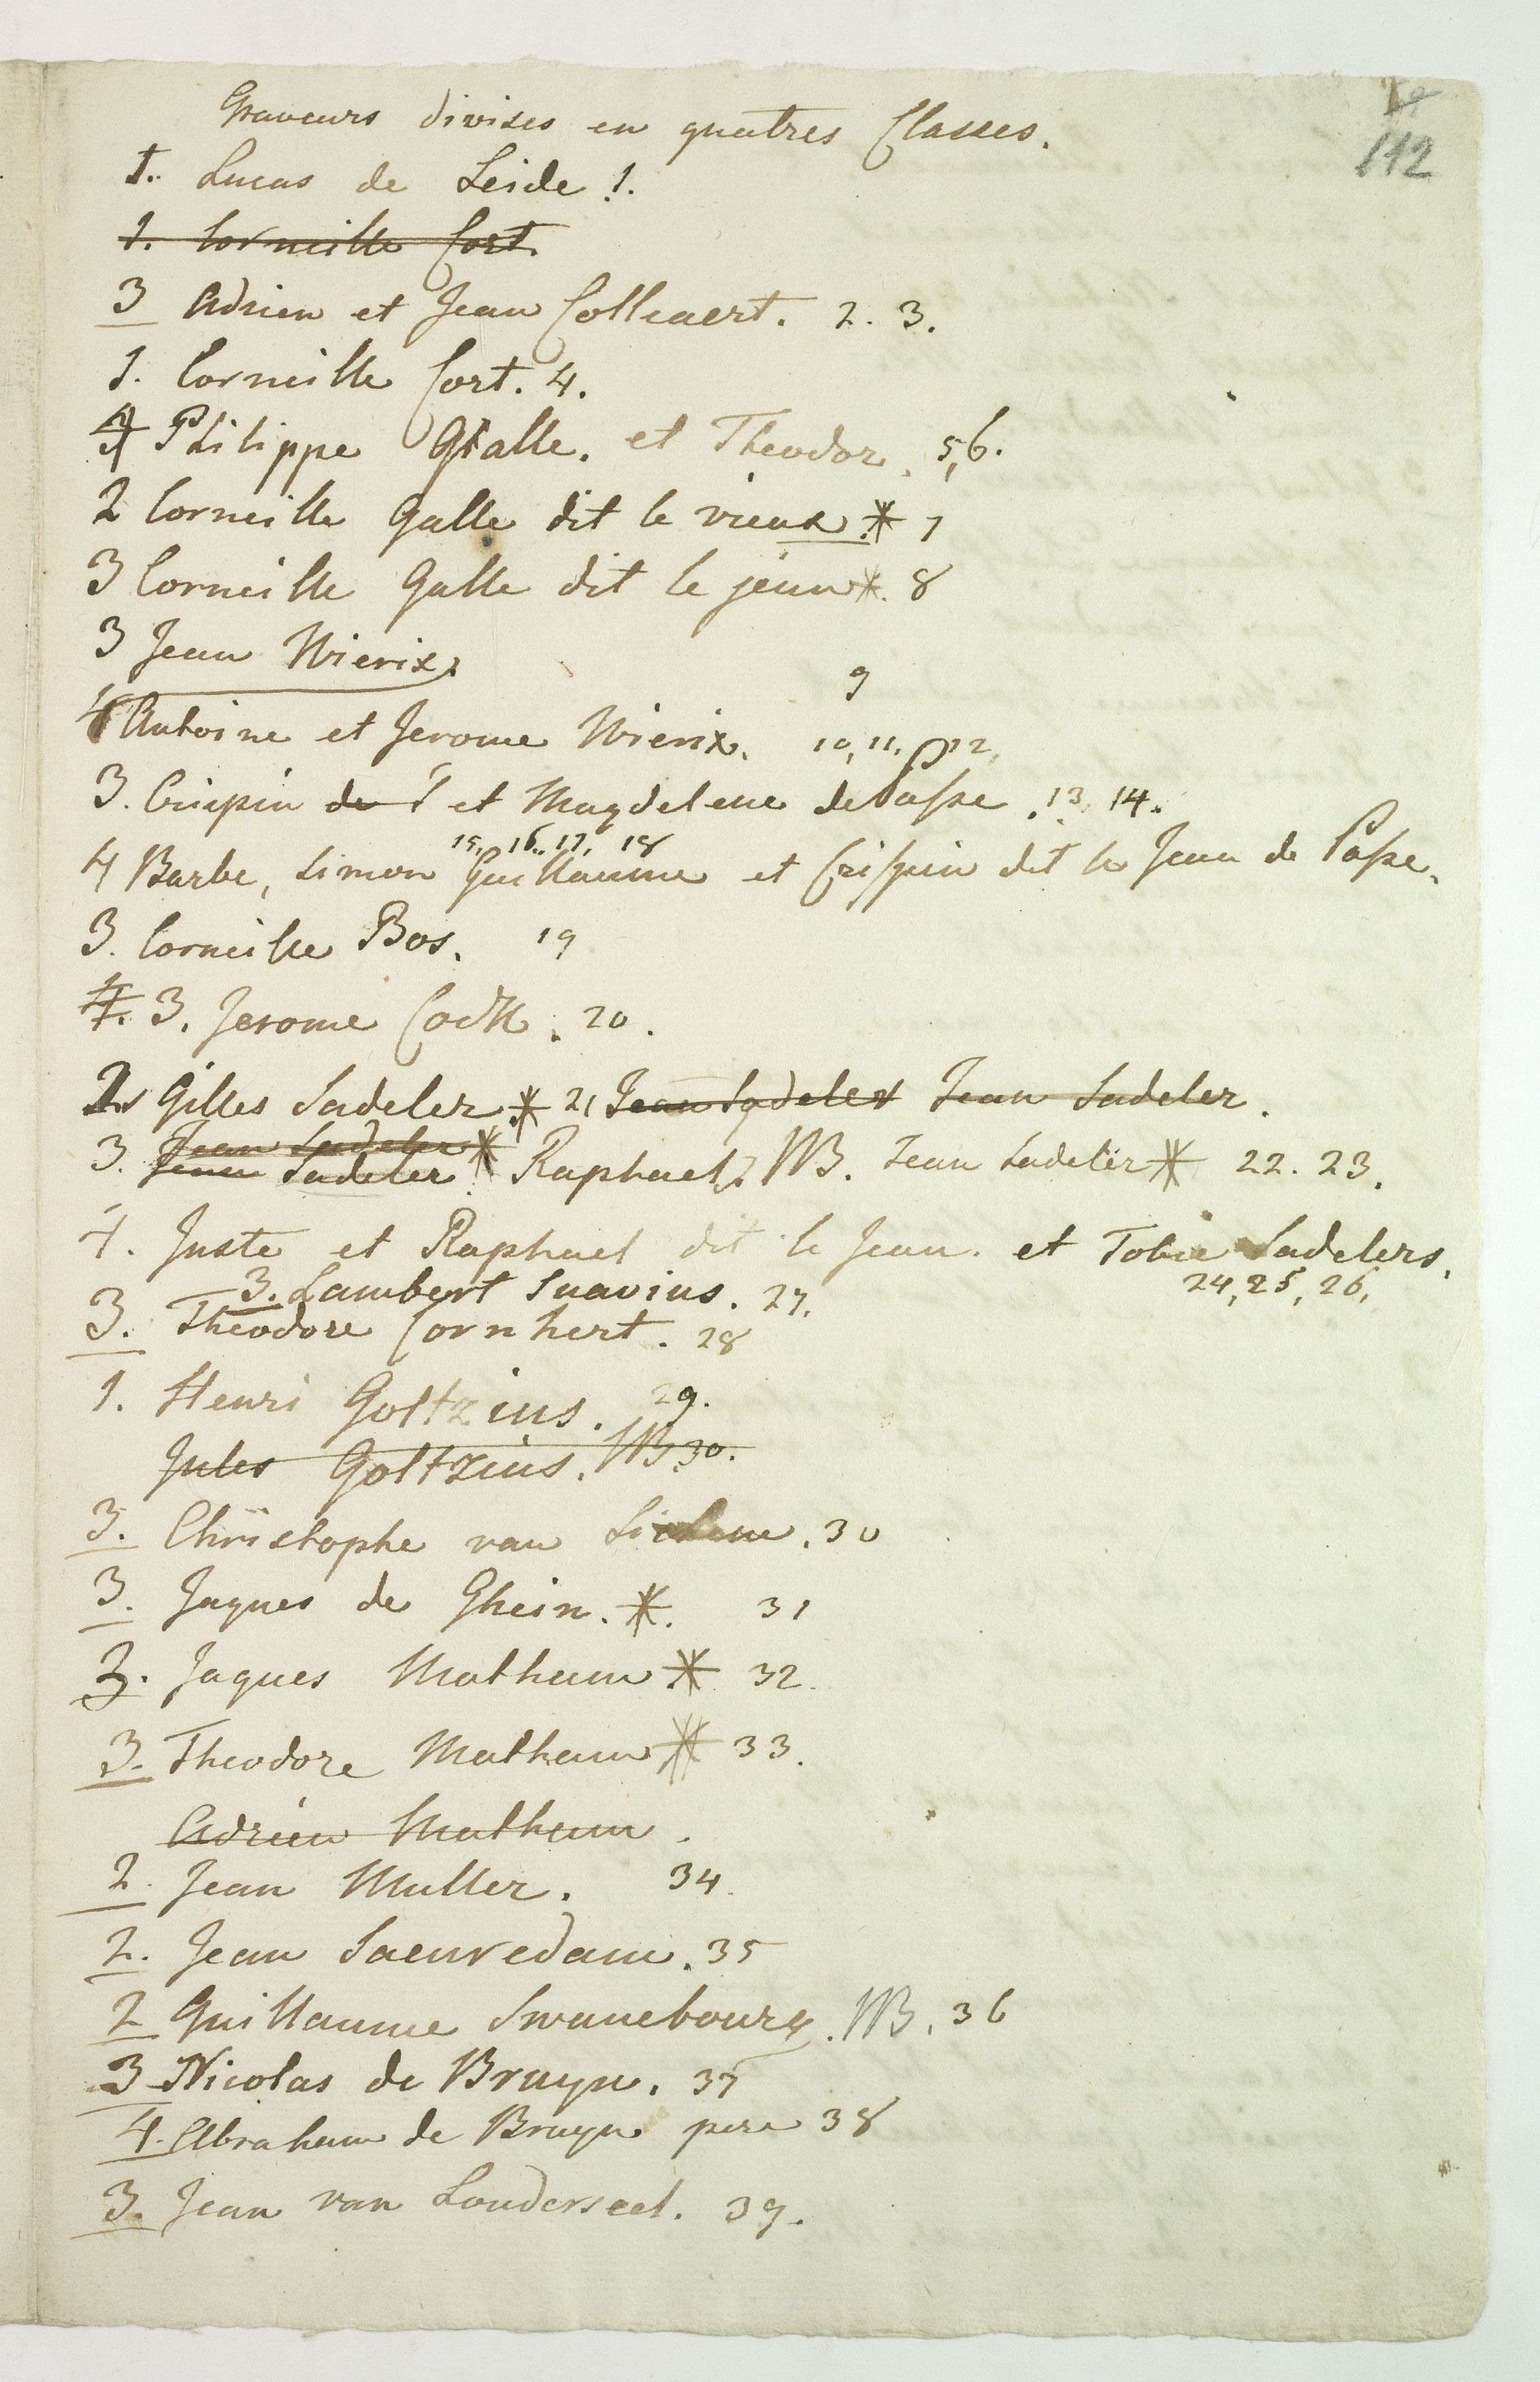 112
Graveurs divises en quatres Classes.
1. Lucas de Leide 1.
1. Corneille Cort.
3 Adrien et Jean Colleaert. 2. 3.
1. Corneille Cort. 4.
Philippe Galle. et Theodor. 5,6.
2 Corneille Galle dit le vieux * 7
3 Corneille Galle dit le jeun * 8
3 Jean Wierix. 9
4 Antoine et Jerome Wierix. 10, 11, 12,
3. Crispin de et Magdelene de Passe. 13 14.
15, 16., 17, 18
4 Barbe, Simon Guillaume et Crispin dit le Jeun de Passe.
3. Corneille Bos. 19
4. 3. Jerome Cock. 20.
2 Gilles Sadeler * 21 Jean Sadeler Jean Sadeler.
Jean Sadeler *
3. Jean Sadeler. Raphael. NB. Jean Sadeler * 22. 23.
4. Juste et Raphael dit le Jeun. et Tobie Sadelers.
24, 25, 26,
3. Lambert Suavius. 27.
3. Theodore Cornhert. 28
1. Henri Goltzius. 29.
Jules Goltzius. NB 30.
3. Christophe van 30
3. Jaques de Ghein. *. 31
3. Jaques Matham * 32.
3. Theodore Matham * 33.
Adrien Matham.
2. Jean Muller. 34.
2. Jean Saenredam. 35
2 Guillaume Swanebourg. NB. 36
3 Nicolas de Bruyn. 37
4. Abraham de Bruyn pere 38
3. Jean van Londerseel. 39.